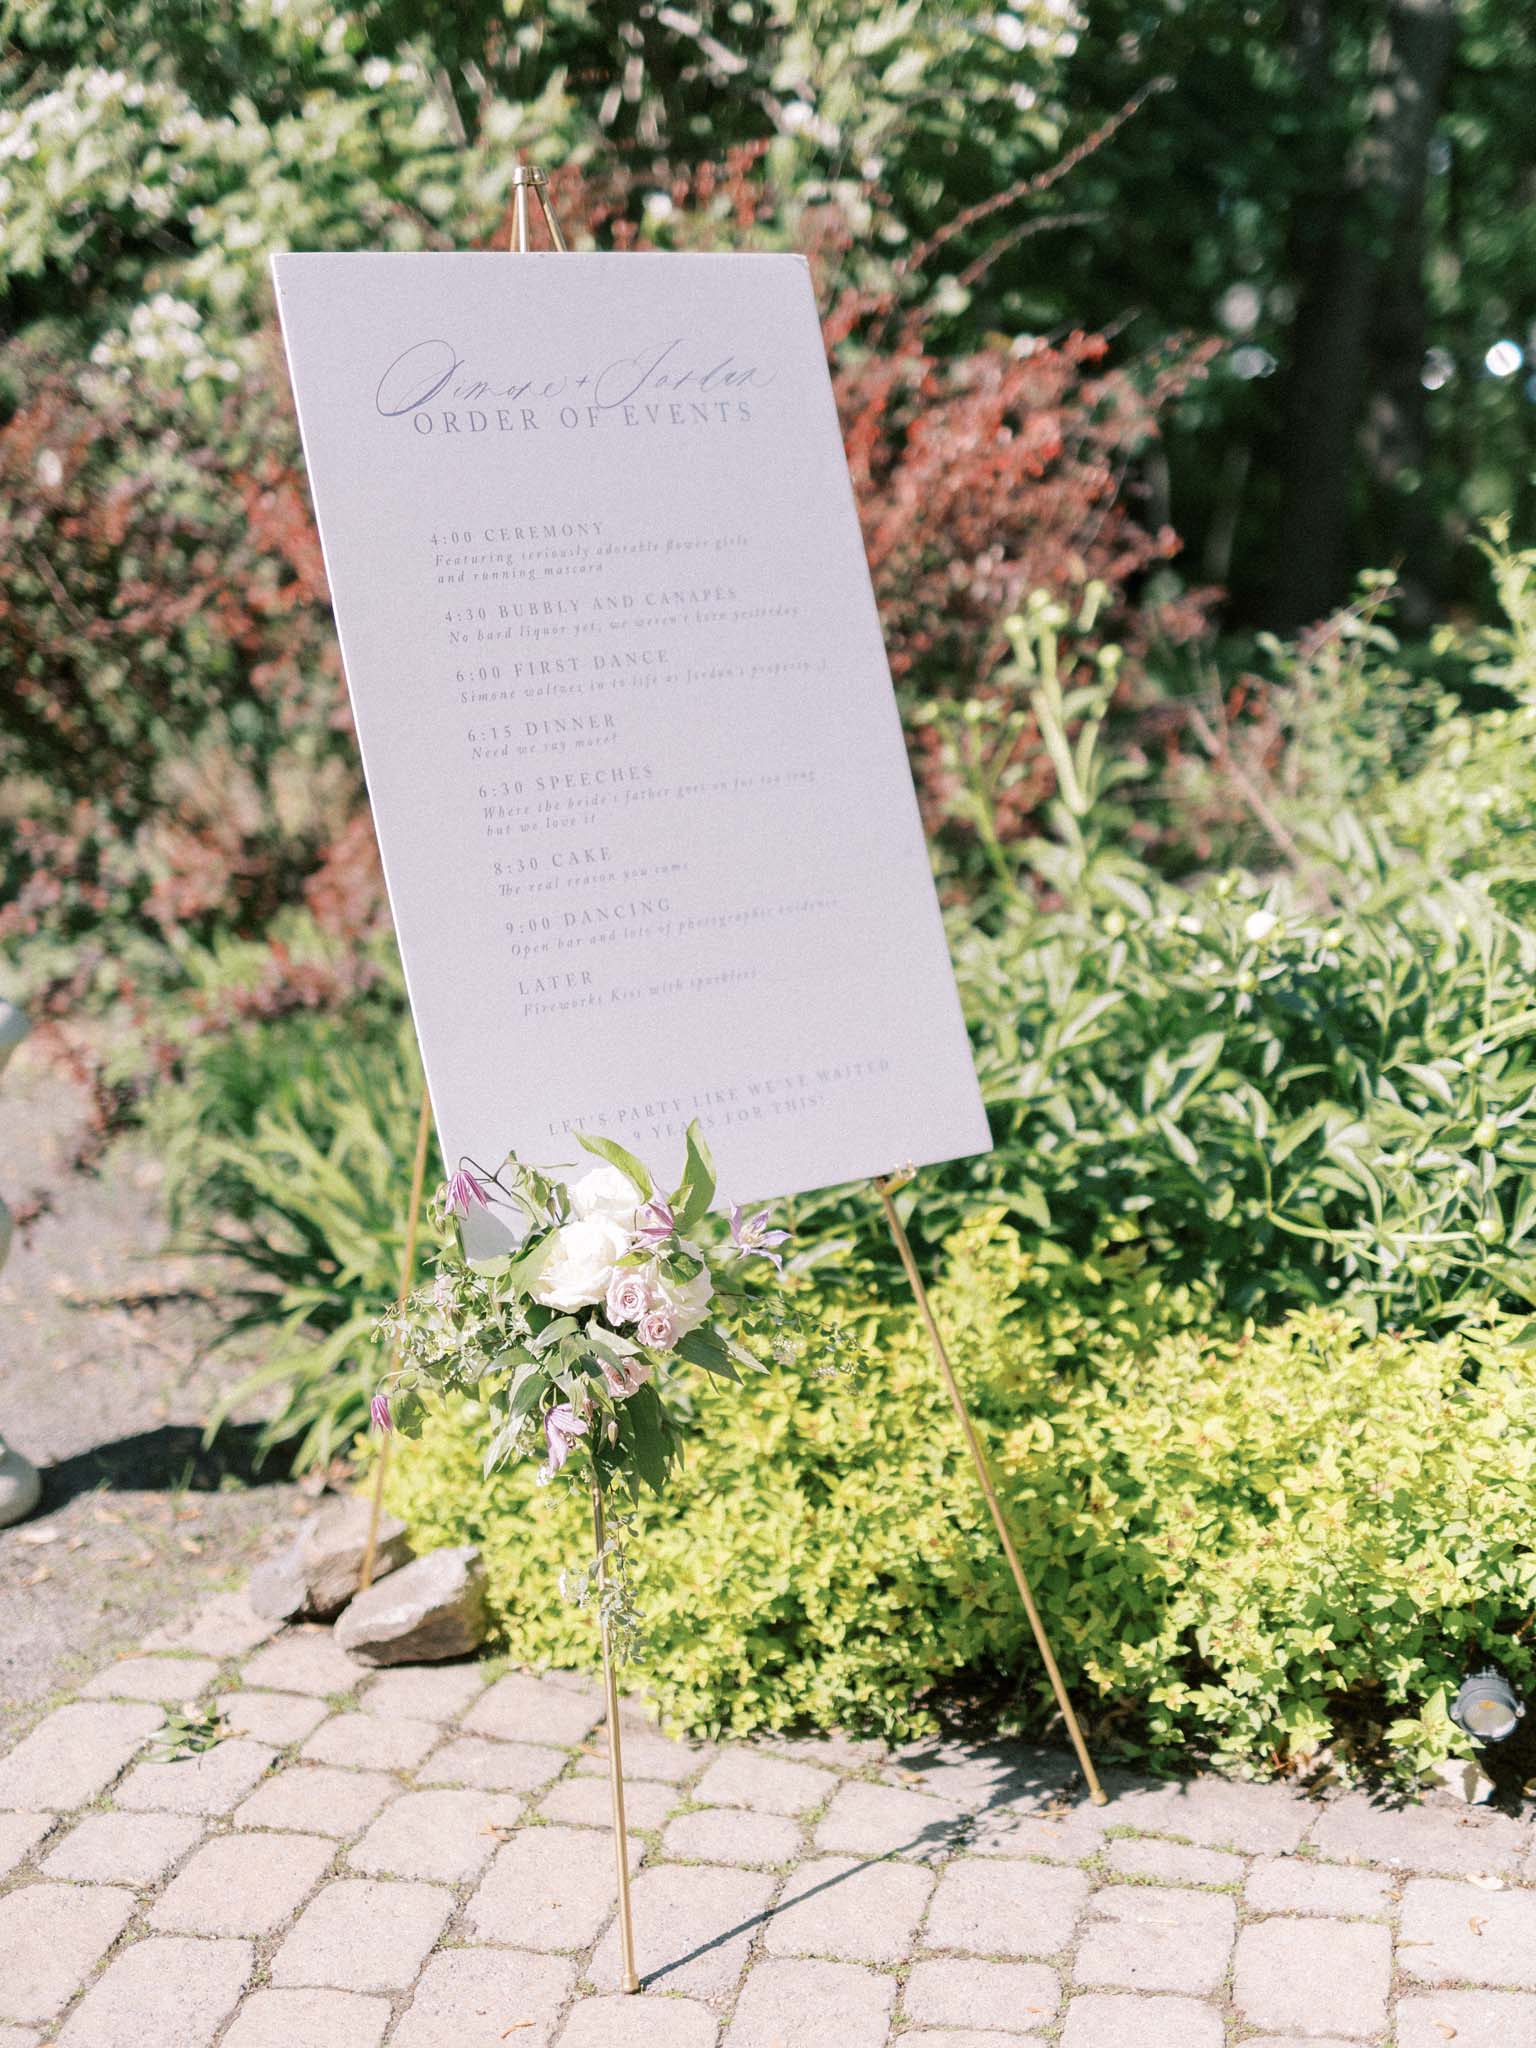 Simone + Jordan
ORDER OF EVENTS
4:00 CEREMONY
Featuring seriously adorable flower girls
and running mascara
4:30 BUBBLY AND CANAPES
No hard liquor yet, we weren't born yesterday
6:00 FIRST DANCE
Simone waltzes in to life as Jordan's property ;)
6:15 DINNER
Need we say more?
6:30 SPEECHES
Where the bride's father goes on for too long
but we love it
8:30 CAKE
The real reason you came
9:00 DANCING
Open bar and lots of photographic evidence
LATER
Fireworks Kiss with sparklers
LET'S PARTY LIKE WE'VE WAITED
9 YEARS FOR THIS!